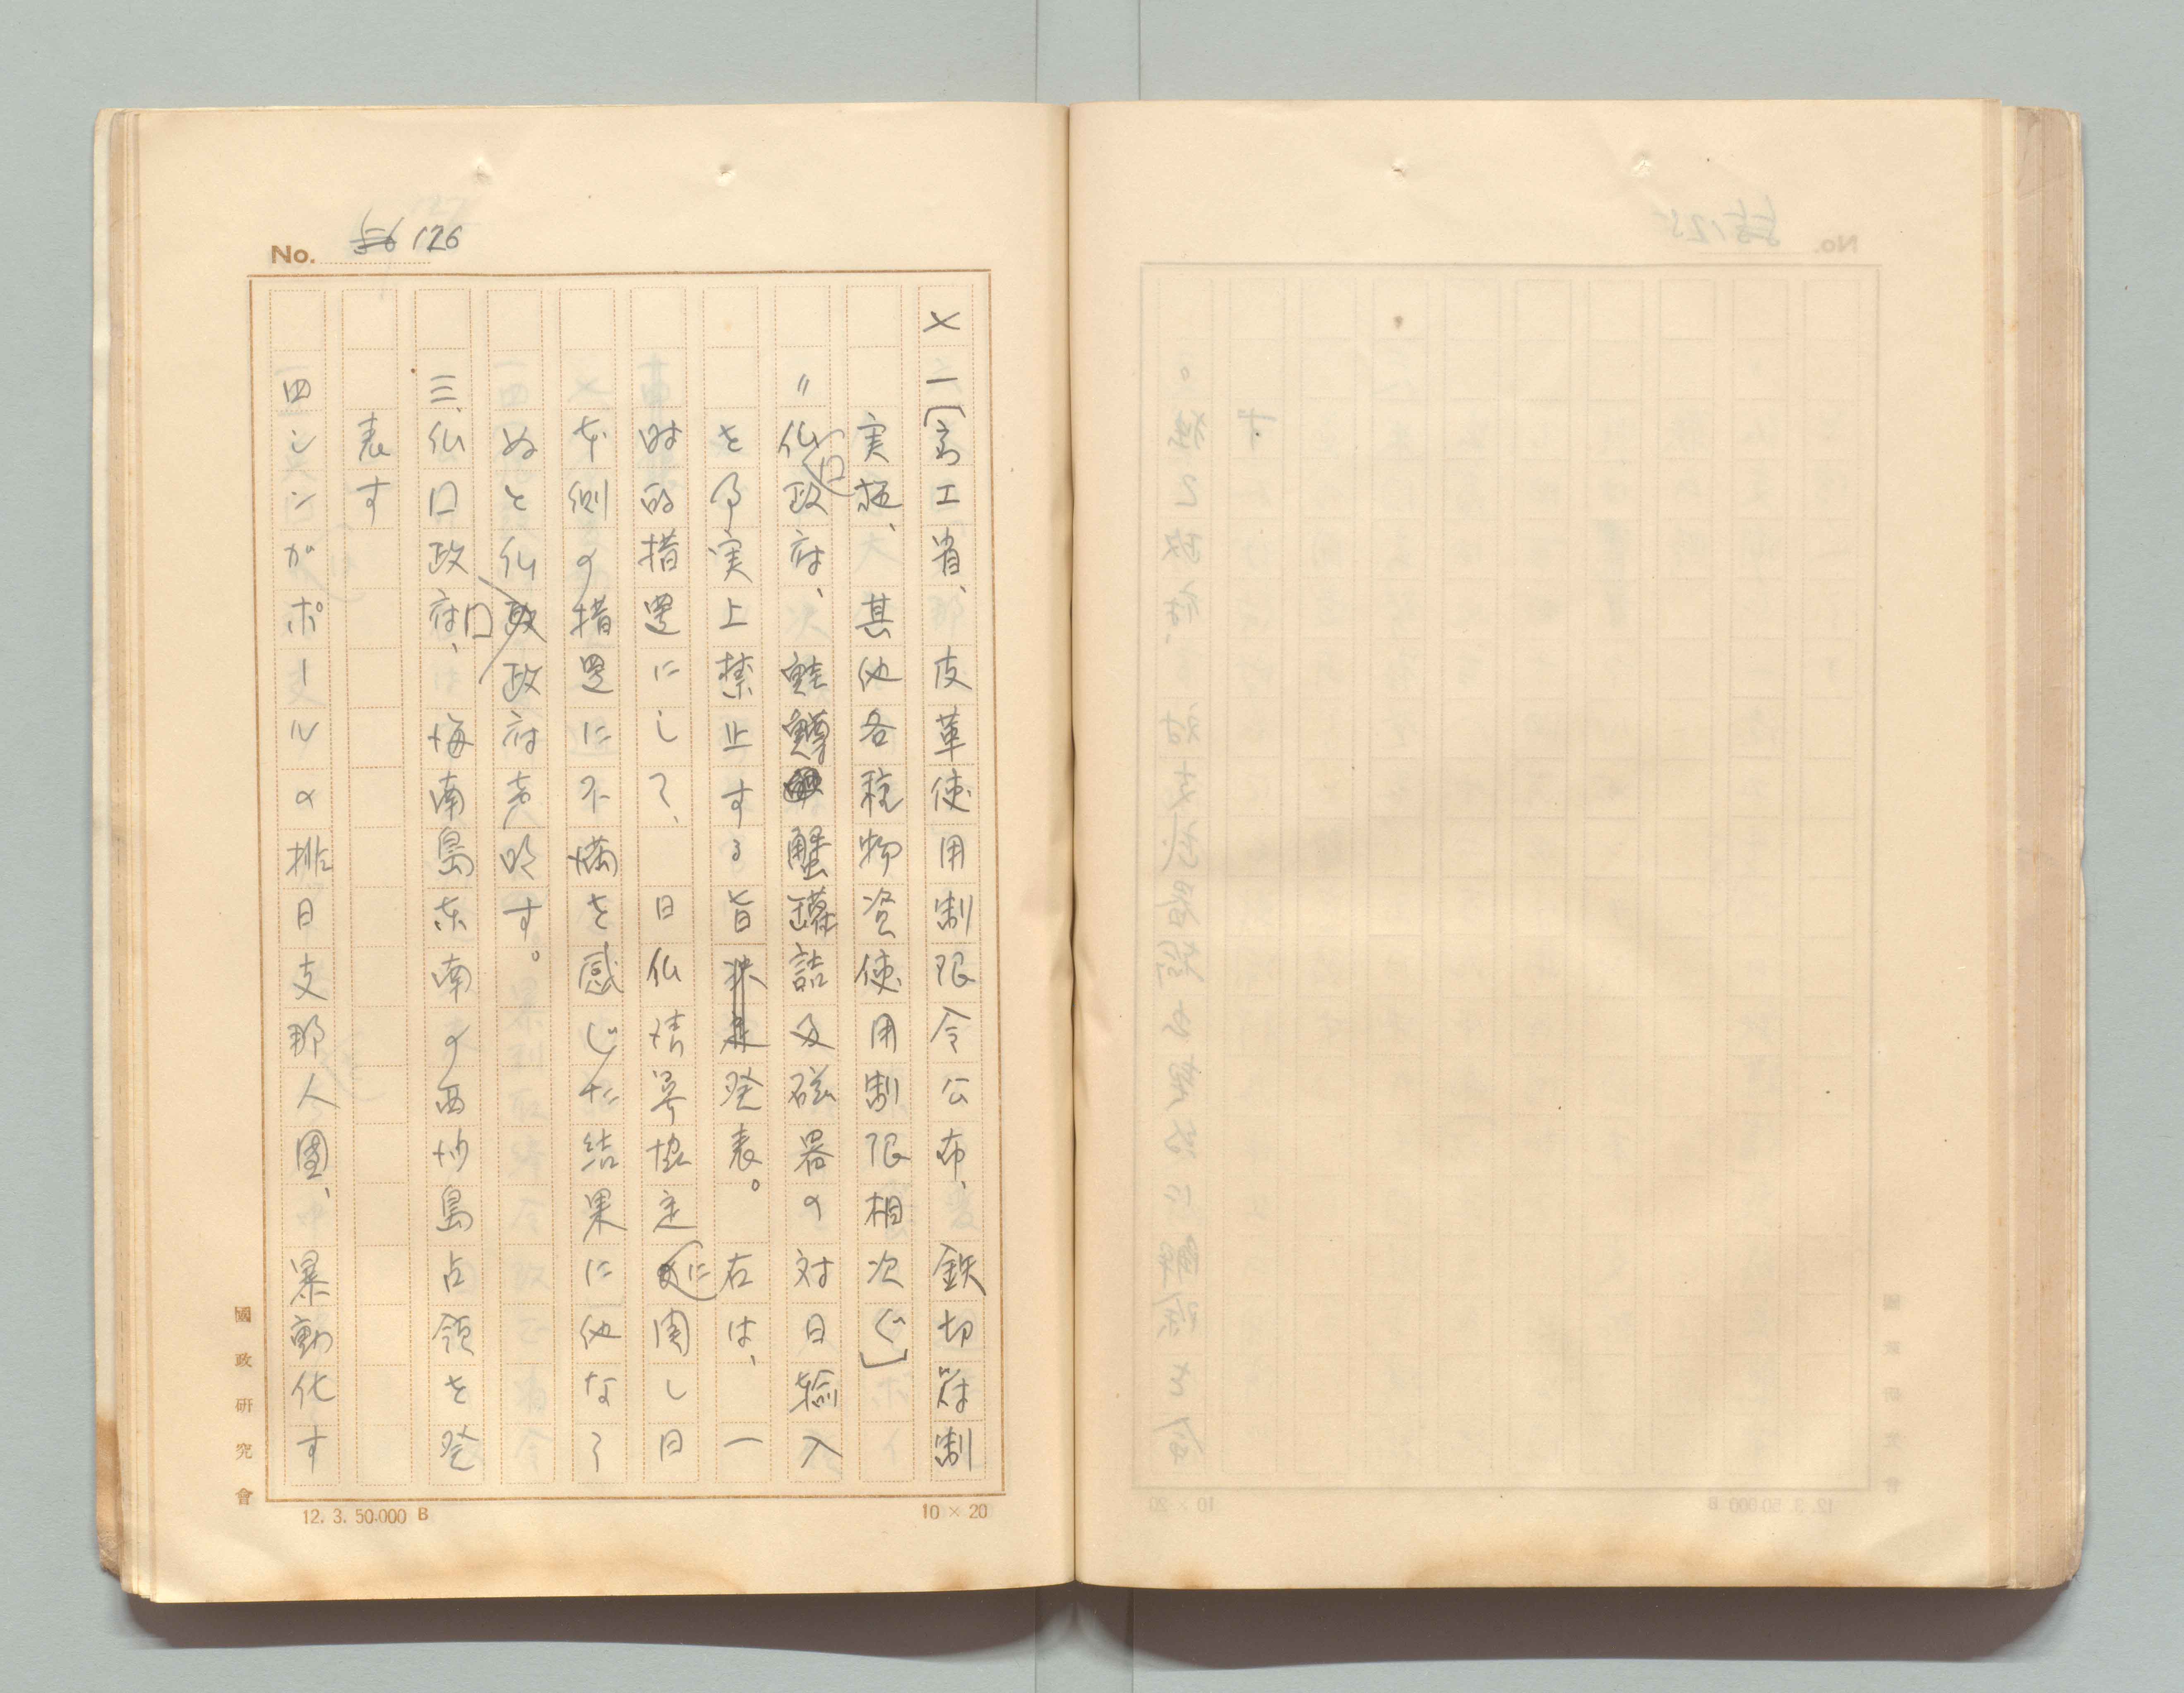 No. 56 126
× 一〔商工省、皮革使用制限令公布、鉄切符制
実施、其他各種物資使用制限相次ぐ〕
〃 仏口政府、鮭鱒蟹罐詰及磁器の対日輸入
を事実上禁止する旨発表。 右は、一
時的措置にして、 日仏情寄協定に関し日
本側の措置に不満を感じた結果に他なら
ぬと仏口政府声明す。
三、仏口政府、海南島東南の西沙島占領を発
表す
四 シンガポールの排日支那人團、暴動化す
國政研究會
12. 3. 50.000 B
10 × 20